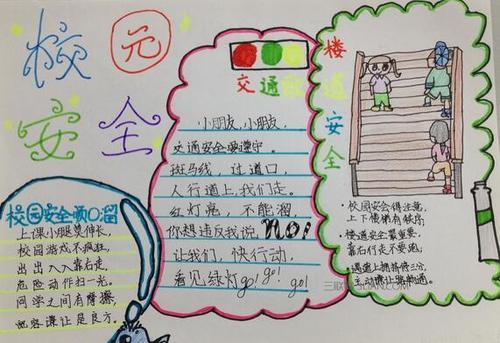 校元
安全
校园安全顺口溜
上课小腿莫伸长,
校园游戏不疯狂,
出出入入靠右走,
危险动作扫一光,
同学之间有摩擦,
宽容谦让是良方。
交通歌
小朋友,小朋友,
交通安全要遵守。
斑马线,过道口,
人行道上,我们走。
红灯亮,不能溜,
你想违反我说,NO!
让我们,快行动,
看见绿灯go!go!go!
楼道安全
校园安会得注意,
上下楼梯有秩序;
楼道安全最重要,
靠右行走不要跑;